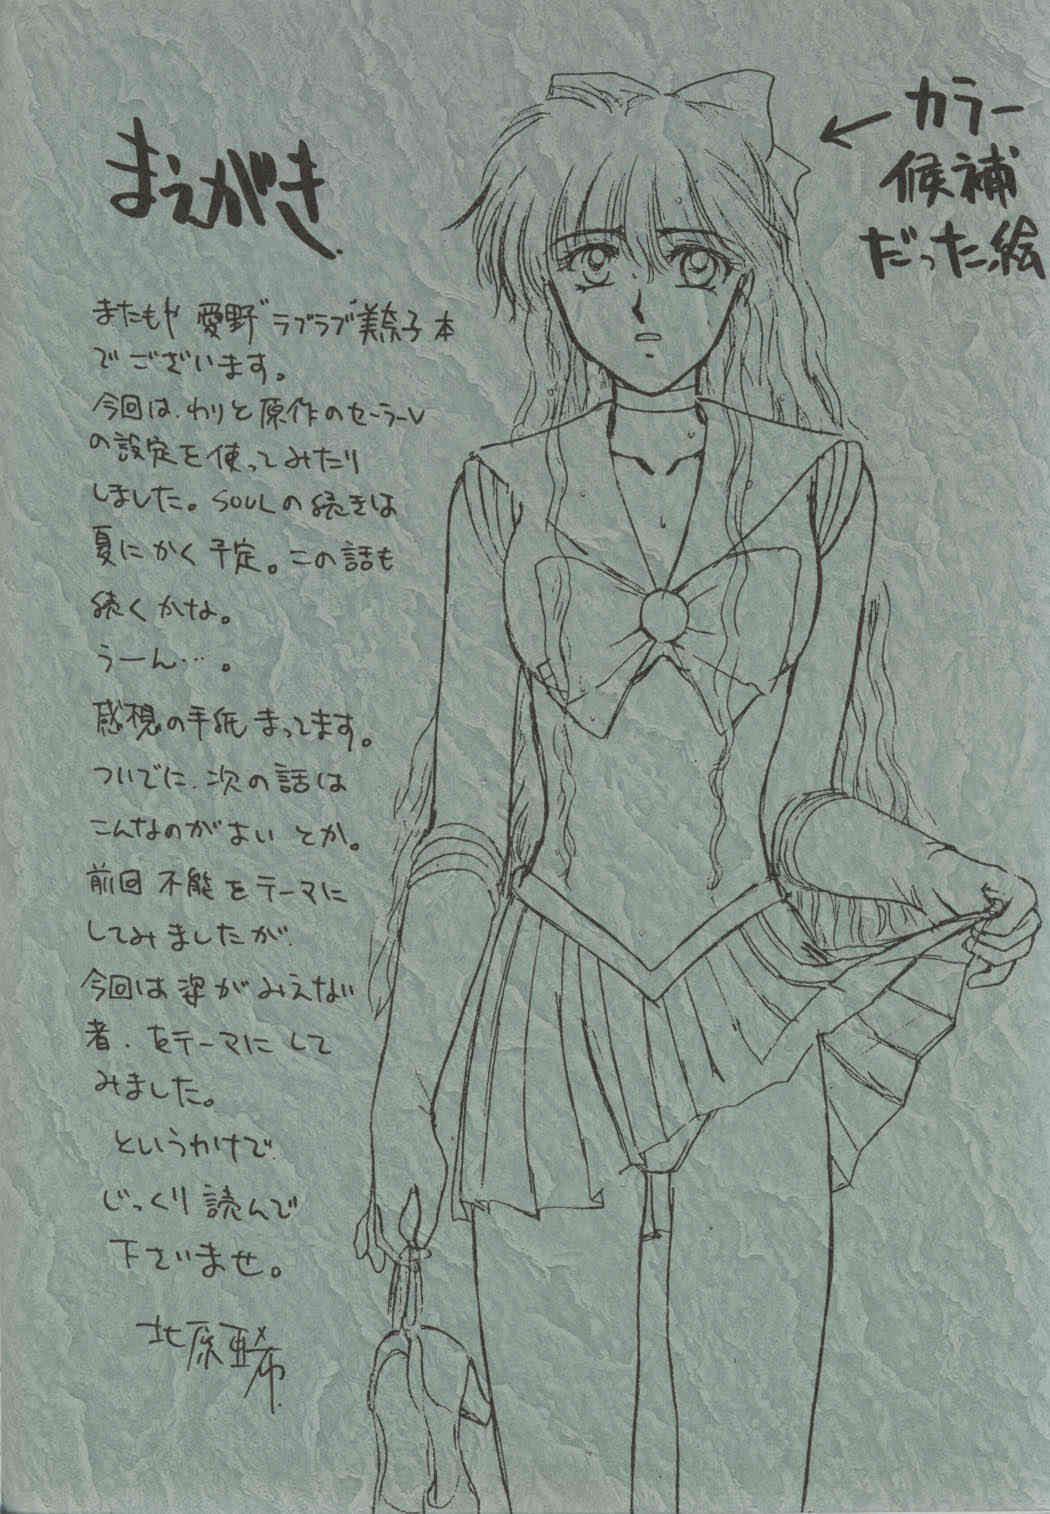 まえがき
またもや 愛野ラブラブ美奈子本
でございます。
今回は、わりと原作のセーラーV
の設定を使ってみたり
しました。SOULの続きは
夏にかく予定。この話も
続くかな。
うーん…。
感想の手紙まってます。
ついでに、次の話は
こんなのがよいとか。
前回不能をテーマに
してみましたが、
今回は姿がみえない
者、をテーマにして
みました。
というわけで
じっくり読んで
下さいませ。
北原亜希
←カラー
候補
だった絵